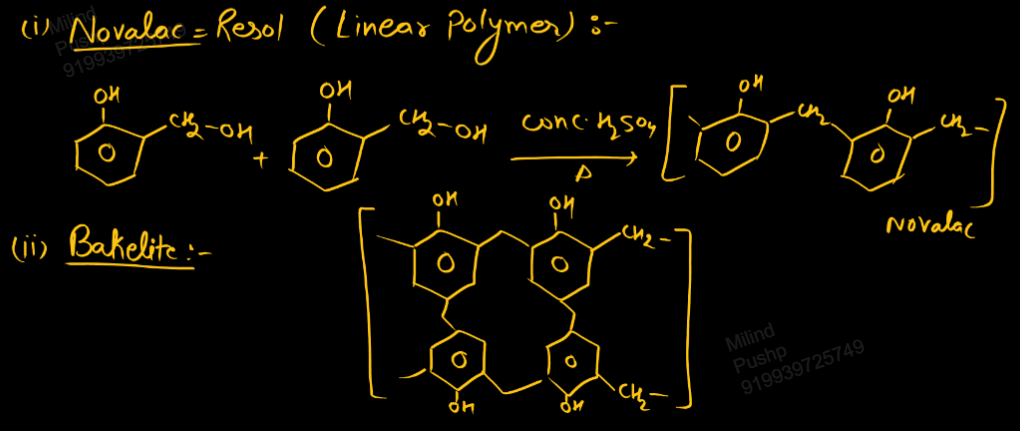 (i) Novalac = Resol (Linear Polymer) :-
Milind
Pushp
919939725749
OH OH OH OH
CH2-OH + CH2-OH conc. H2SO4 CH2 CH2-
Δ
Novalac
(ii) Bakelite :-
OH OH
CH2-
OH OH
CH2-
Milind
Pushp
919939725749